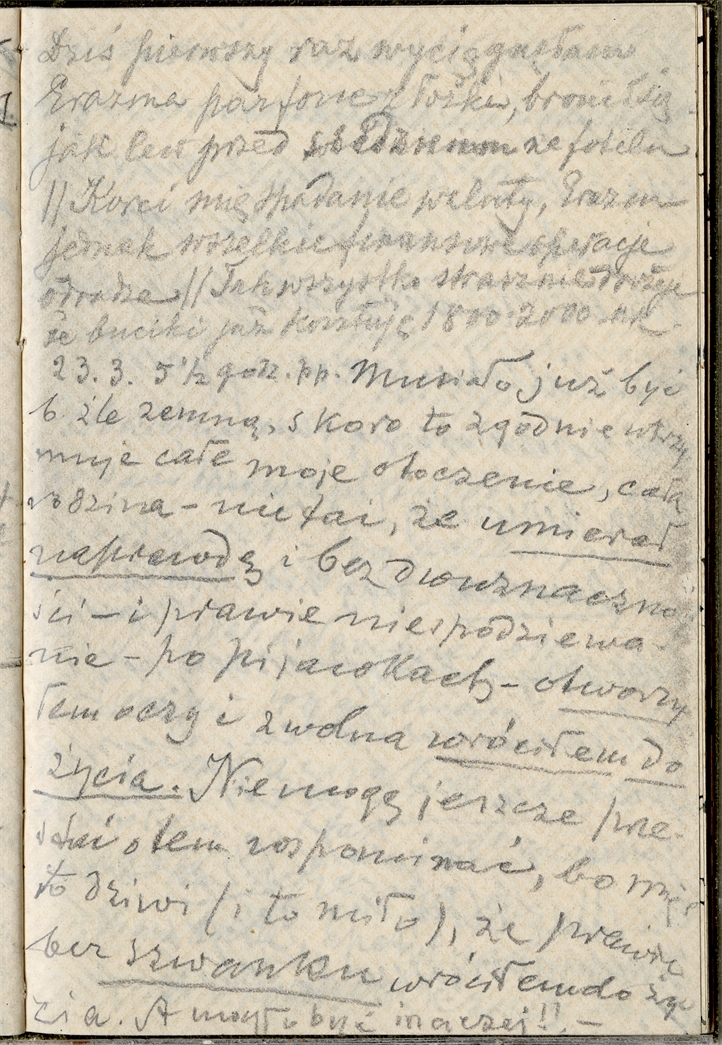 Dziś pierwszy raz wyciągnęłam
Erazma par force z łóżka, bronił się
jak lew przed siedzeniem na fotelu
|| Korci mię spadanie waluty, Erazm
jednak wszelkie finansowe operacje
odradza || Tak wszystko strasznie drożeje
że buciki już kosztują 1800-2000 mk.
23. 3. 5 1/2 godz. pp. Musiało już być
b. źle zemną, skoro to zgodnie utrzy
muje całe moje otoczenie, cała
rodzina – nie tai, że umierał
naprawdę i bez dwuznaczno
ści – i prawie niespodziewa-
nie – po pijawkach – otworzy
łem oczy i zwolna wróciłem do
życia. Niemogę jeszcze prze-
stać o tem wspominać, bo mię
to dziwi (i to miło), że prawie
bez szwanku wróciłem do ży
cia. A mogło być inaczej!! –